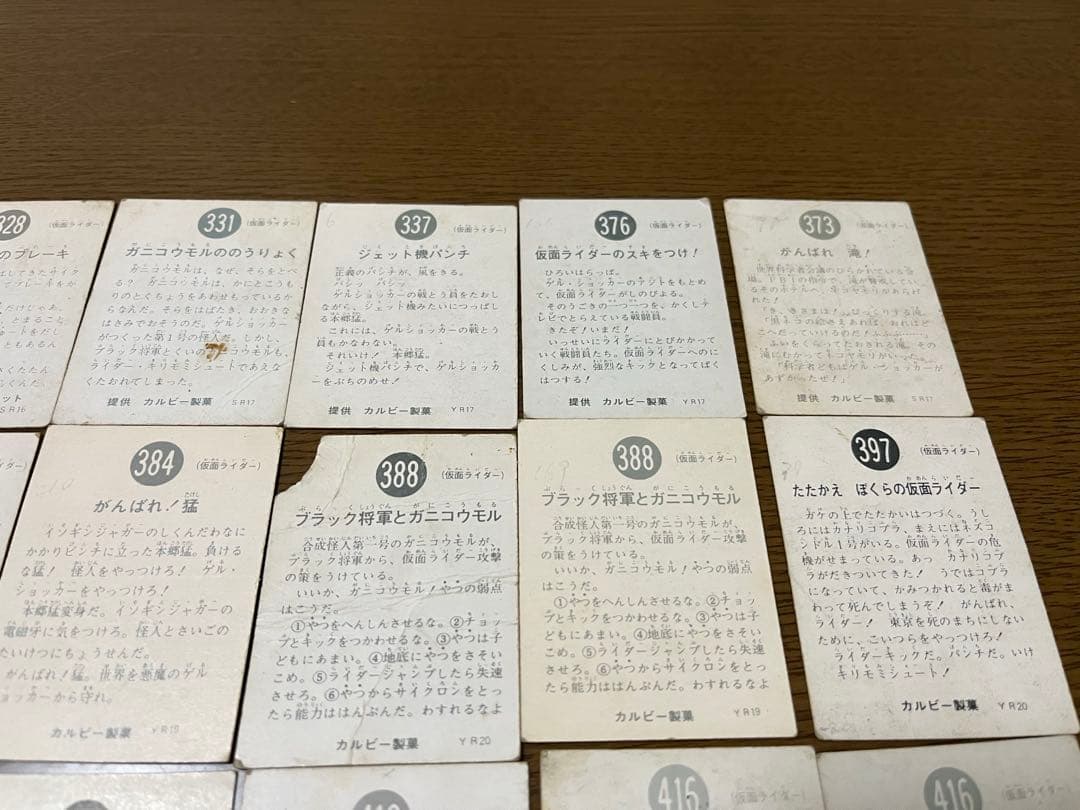 328
(仮面ライダー)
のブレーキ
ばしてきたサイク
てブレーキをか
だたけじゃあ、
、とまること
ュートをだし
ともあるん
さくたたん
くんだ。
ット
SR16
331
(仮面ライダー)
ガニコウモルののうりょく
ガニコウモルは、なぜ、そらをとべ
る? ガニコウモルは、かにとこうも
りのとくちょうをあわせもっているか
らなんだ。そらをはばたき、おおきな
はさみでおそうのだ。ゲルショッカー
がつくった第1号の怪人だ。しかし、
ブラック将軍とくいの コウモルも、
ライダー・キリモミシュートであえな
くたおれてしまった。
提供 カルビー製菓 SR17
337
(仮面ライダー)
ジェット機パンチ
正義のパンチが、風をきる。
バシッ バシッ
ゲルショッカーの戦とう員をたおし
ながら、ジェット機みたいにつっぱし
る本郷猛。
これには、ゲルショッカーの戦とう
員もかなわない。
それいけ! 本郷猛。
ジェット機パンチで、ゲルショッカ
ーをぶちのめせ!
提供 カルビー製菓 YR17
376
(仮面ライダー)
仮面ライダーのスキをつけ!
ひろいはらっぱ。
ゲル・ショッカーのアジトをもとめ
て、仮面ライダーがしのびよる。
そのうごきの一つ一つを、かくしテ
レビでとらえている戦闘員。
きたぞ!いまだ!
いっせいにライダーにとびかかって
いく戦闘員たち。仮面ライダーへのに
くしみが、強烈なキックとなってばく
はつする!
提供 カルビー製菓 YR17
373
(仮面ライダー)
がんばれ 滝!
世界科学者会議のひらかれている会
場。FBIの指令で、滝が警戒してい
るそのホテルへ、ネコヤモリがあらわ
れた!
「き、きさまは!」びっくりする滝。
「黒ネコの絵さえあれば、おれはど
こへだっていけるのだ!ふふふ……」
ふいをくらってたおされる滝。その
滝にむかってネコヤモリがいった。
「科学者どもはゲル・ショッカーが
あずかったぜ!」
提供 カルビー製菓 SR17
384
(仮面ライダー)
がんばれ!猛
イソギンジャガーのしくんだわなに
かかりピンチに立った本郷猛。負ける
な猛! 怪人をやっつけろ! ゲル・
ショッカーをやっつけろ!
本郷猛変身だ。イソギンジャガーの
電磁牙に気をつけろ。怪人とさいごの
たいけつにちょうせんだ。
がんばれ!猛。世界を悪魔のゲル
ョッカーから守れ。
カルビー製菓 YR19
388
(仮面ライダー)
ブラック将軍とガニコウモル
合成怪人第一号のガニコウモルが、
ブラック将軍から、仮面ライダー攻撃
の策をうけている。
いいか、ガニコウモル!やつの弱点
はこうだ。
①やつをへんしんさせるな。②チョッ
プとキックをつかわせるな。③やつは子
どもにあまい。④地底にやつをさそい
こめ。⑤ライダージャンプしたら失速
させろ。⑥やつからサイクロンをとっ
たら能力ははんぶんだ。わすれるなよ
カルビー製菓 YR20
388
(仮面ライダー)
ブラック将軍とガニコウモル
合成怪人第一号のガニコウモルが、
ブラック将軍から、仮面ライダー攻撃
の策をうけている。
いいか、ガニコウモル!やつの弱点
はこうだ。
①やつをへんしんさせるな。②チョッ
プとキックをつかわせるな。③やつは子
どもにあまい。④地底にやつをさそい
こめ。⑤ライダージャンプしたら失速
させろ。⑥やつからサイクロンをとっ
たら能力ははんぶんだ。わすれるなよ
カルビー製菓 YR19
397
(仮面ライダー)
たたかえ ぼくらの仮面ライダー
ガケの上でたたかいはつづく。うし
ろにはカナリコブラ、まえにはネズコ
ンドル1号がいる。仮面ライダーの危
機がせまっている。あっ カナリコブ
ラがだきついてきた! うではコブラ
になっていて、かみつかれると毒がま
わって死んでしまうぞ! がんばれ、
ライダー! 東京を死のまちにしない
ために、こいつらをやっつけろ!
ライダーキックだ。パンチだ。いけ
キリモミシュート!
カルビー製菓 YR20
416
416